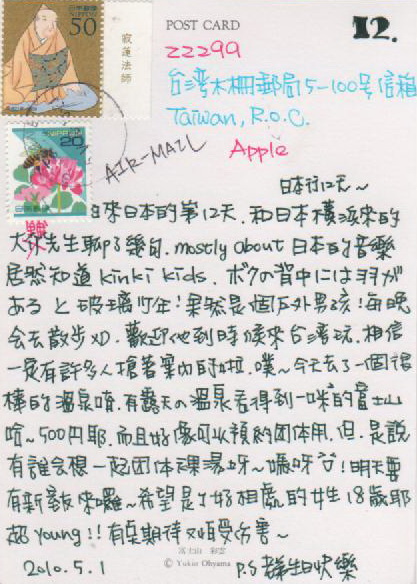 日本郵便
NIPPON
50
寂蓮法師
POST CARD
12.
22299
台灣木柵郵局5-100号信箱
Taiwan, R.O.C.
日本郵便
NIPPON
20
AIR-MAIL
Apple
日本行12天~
來日本的第12天.和日本橫濱來的
大叔先生聊了幾句.mostly about 日本的音樂
居然知道 kinki kids. ボクの背中には羽が
ある と 玻璃少年!果然是個戶外男孩!每晚
会去散步XD. 歡迎他到時候來台湾玩.相信
一定有許多人搶著案內的啦.噗~今天去了一個很
棒的溫泉唷.有露天の溫泉看得到一咪的富士山
唷~500円耶.而且好像可以預約团体用.但.是說
有誰会想一起团体裸湯呀~嗚呀!明天要
有新室友來囉~希望是个好相處的女生18歲耶
超young!!有点期待又怕受伤害~
富士山 彩雲
© Yukio Ohyama
2010.5.1
P.S 生日快樂